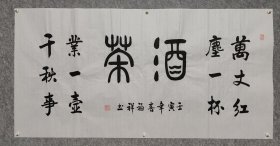 萬丈紅
塵一杯
酒
千秋事
業一壺
茶
壬寅年春福祥书